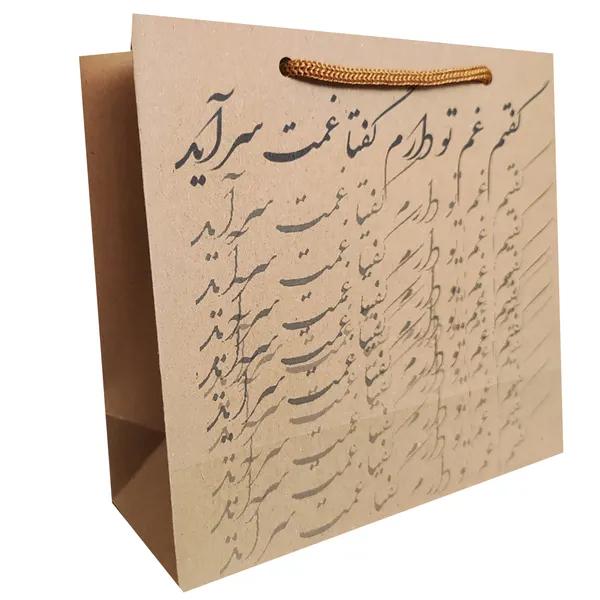 گفتم غم تو دارم گفتا غمت سرآید
گفتم غم تو دارم گفتا غمت سرآید
گفتم غم تو دارم گفتا غمت سرآید
گفتم غم تو دارم گفتا غمت سرآید
گفتم غم تو دارم گفتا غمت سرآید
گفتم غم تو دارم گفتا غمت سرآید
گفتم غم تو دارم گفتا غمت سرآید
گفتم غم تو دارم گفتا غمت سرآید
گفتم غم تو دارم گفتا غمت سرآید